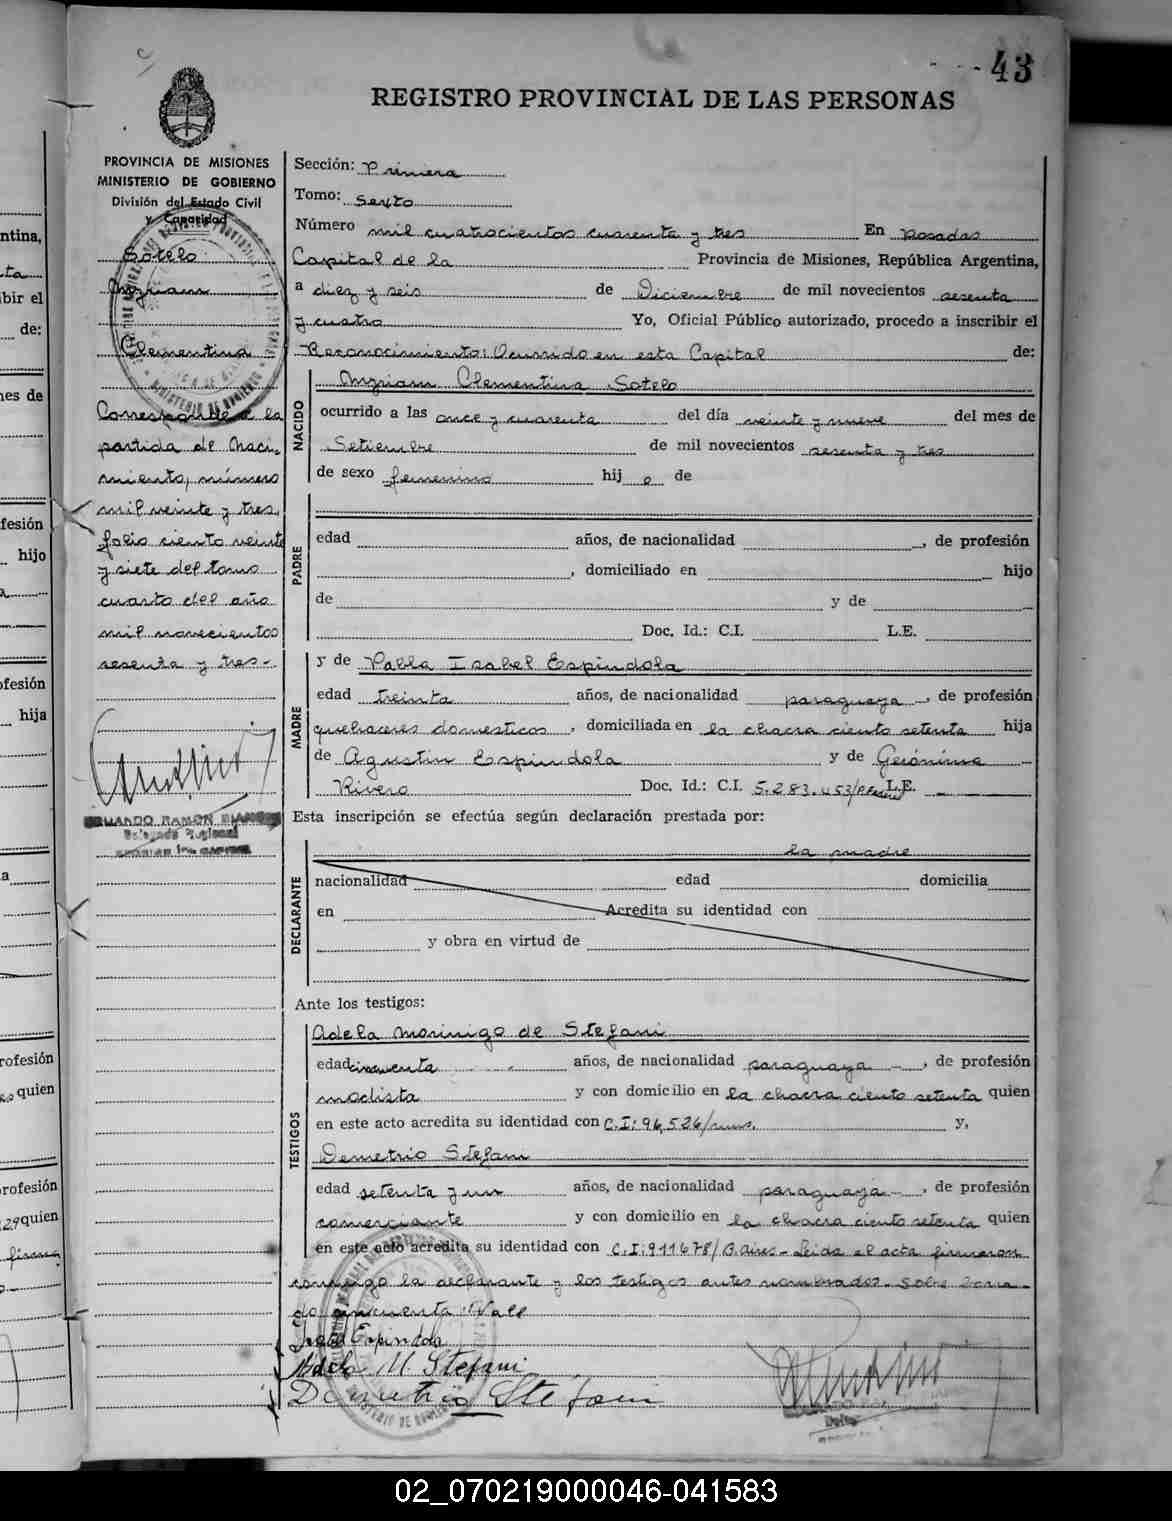 43
REGISTRO PROVINCIAL DE LAS PERSONAS
PROVINCIA DE MISIONES
MINISTERIO DE GOBIERNO
División del Estado Civil
y Capacidad
Sotelo
Myriam
Clementina
Corresponde a la
partida de Naci-
miento, número
mil veinte y tres,
folio ciento veinte
y siete del tomo
cuarto del año
mil novecientos
sesenta y tres-
Sección: Primera
Tomo: Sexto
Número mil cuatrocientos cuarenta y tres En Posadas
Capital de la Provincia de Misiones, República Argentina,
a diez y seis de Diciembre de mil novecientos sesenta
y cuatro Yo, Oficial Público autorizado, procedo a inscribir el
Reconocimiento: Ocurrido en esta Capital de:
NACIDO
Myriam Clementina Sotelo
ocurrido a las once y cuarenta del día veinte y nueve del mes de
Setiembre de mil novecientos sesenta y tres
de sexo femenino hij a de
PADRE
edad años, de nacionalidad , de profesión
, domiciliado en hijo
de y de
Doc. Id.: C.I. L.E.
MADRE
y de Pabla Isabel Espindola
edad treinta años, de nacionalidad paraguaya , de profesión
quehaceres domesticos , domiciliada en la chacra ciento setenta hija
de Agustin Espindola y de Gerónima
Rivero Doc. Id.: C.I. 5.283.453/ L.E.
Esta inscripción se efectúa según declaración prestada por:
DECLARANTE
la madre
nacionalidad edad domicilia
en Acredita su identidad con
y obra en virtud de
Ante los testigos:
TESTIGOS
Adela Morinigo de Stefani
edad cincuenta años, de nacionalidad paraguaya , de profesión
modista y con domicilio en la chacra ciento setenta quien
en este acto acredita su identidad con C.I: 96,526/ y,
Demetrio Stefani
edad setenta y un años, de nacionalidad paraguaya , de profesión
comerciante y con domicilio en la chacra ciento setenta quien
en este acto acredita su identidad con C.I: 911678/B.aires- Leida el acta firmaron
conmigo la declarante y los testigos antes nombrados. Sobre borra-
do: cincuenta: Vale
Espindola
Adela M. Stefani
Demetrio Stefani
EDUARDO RAMON
02_070219000046-041583